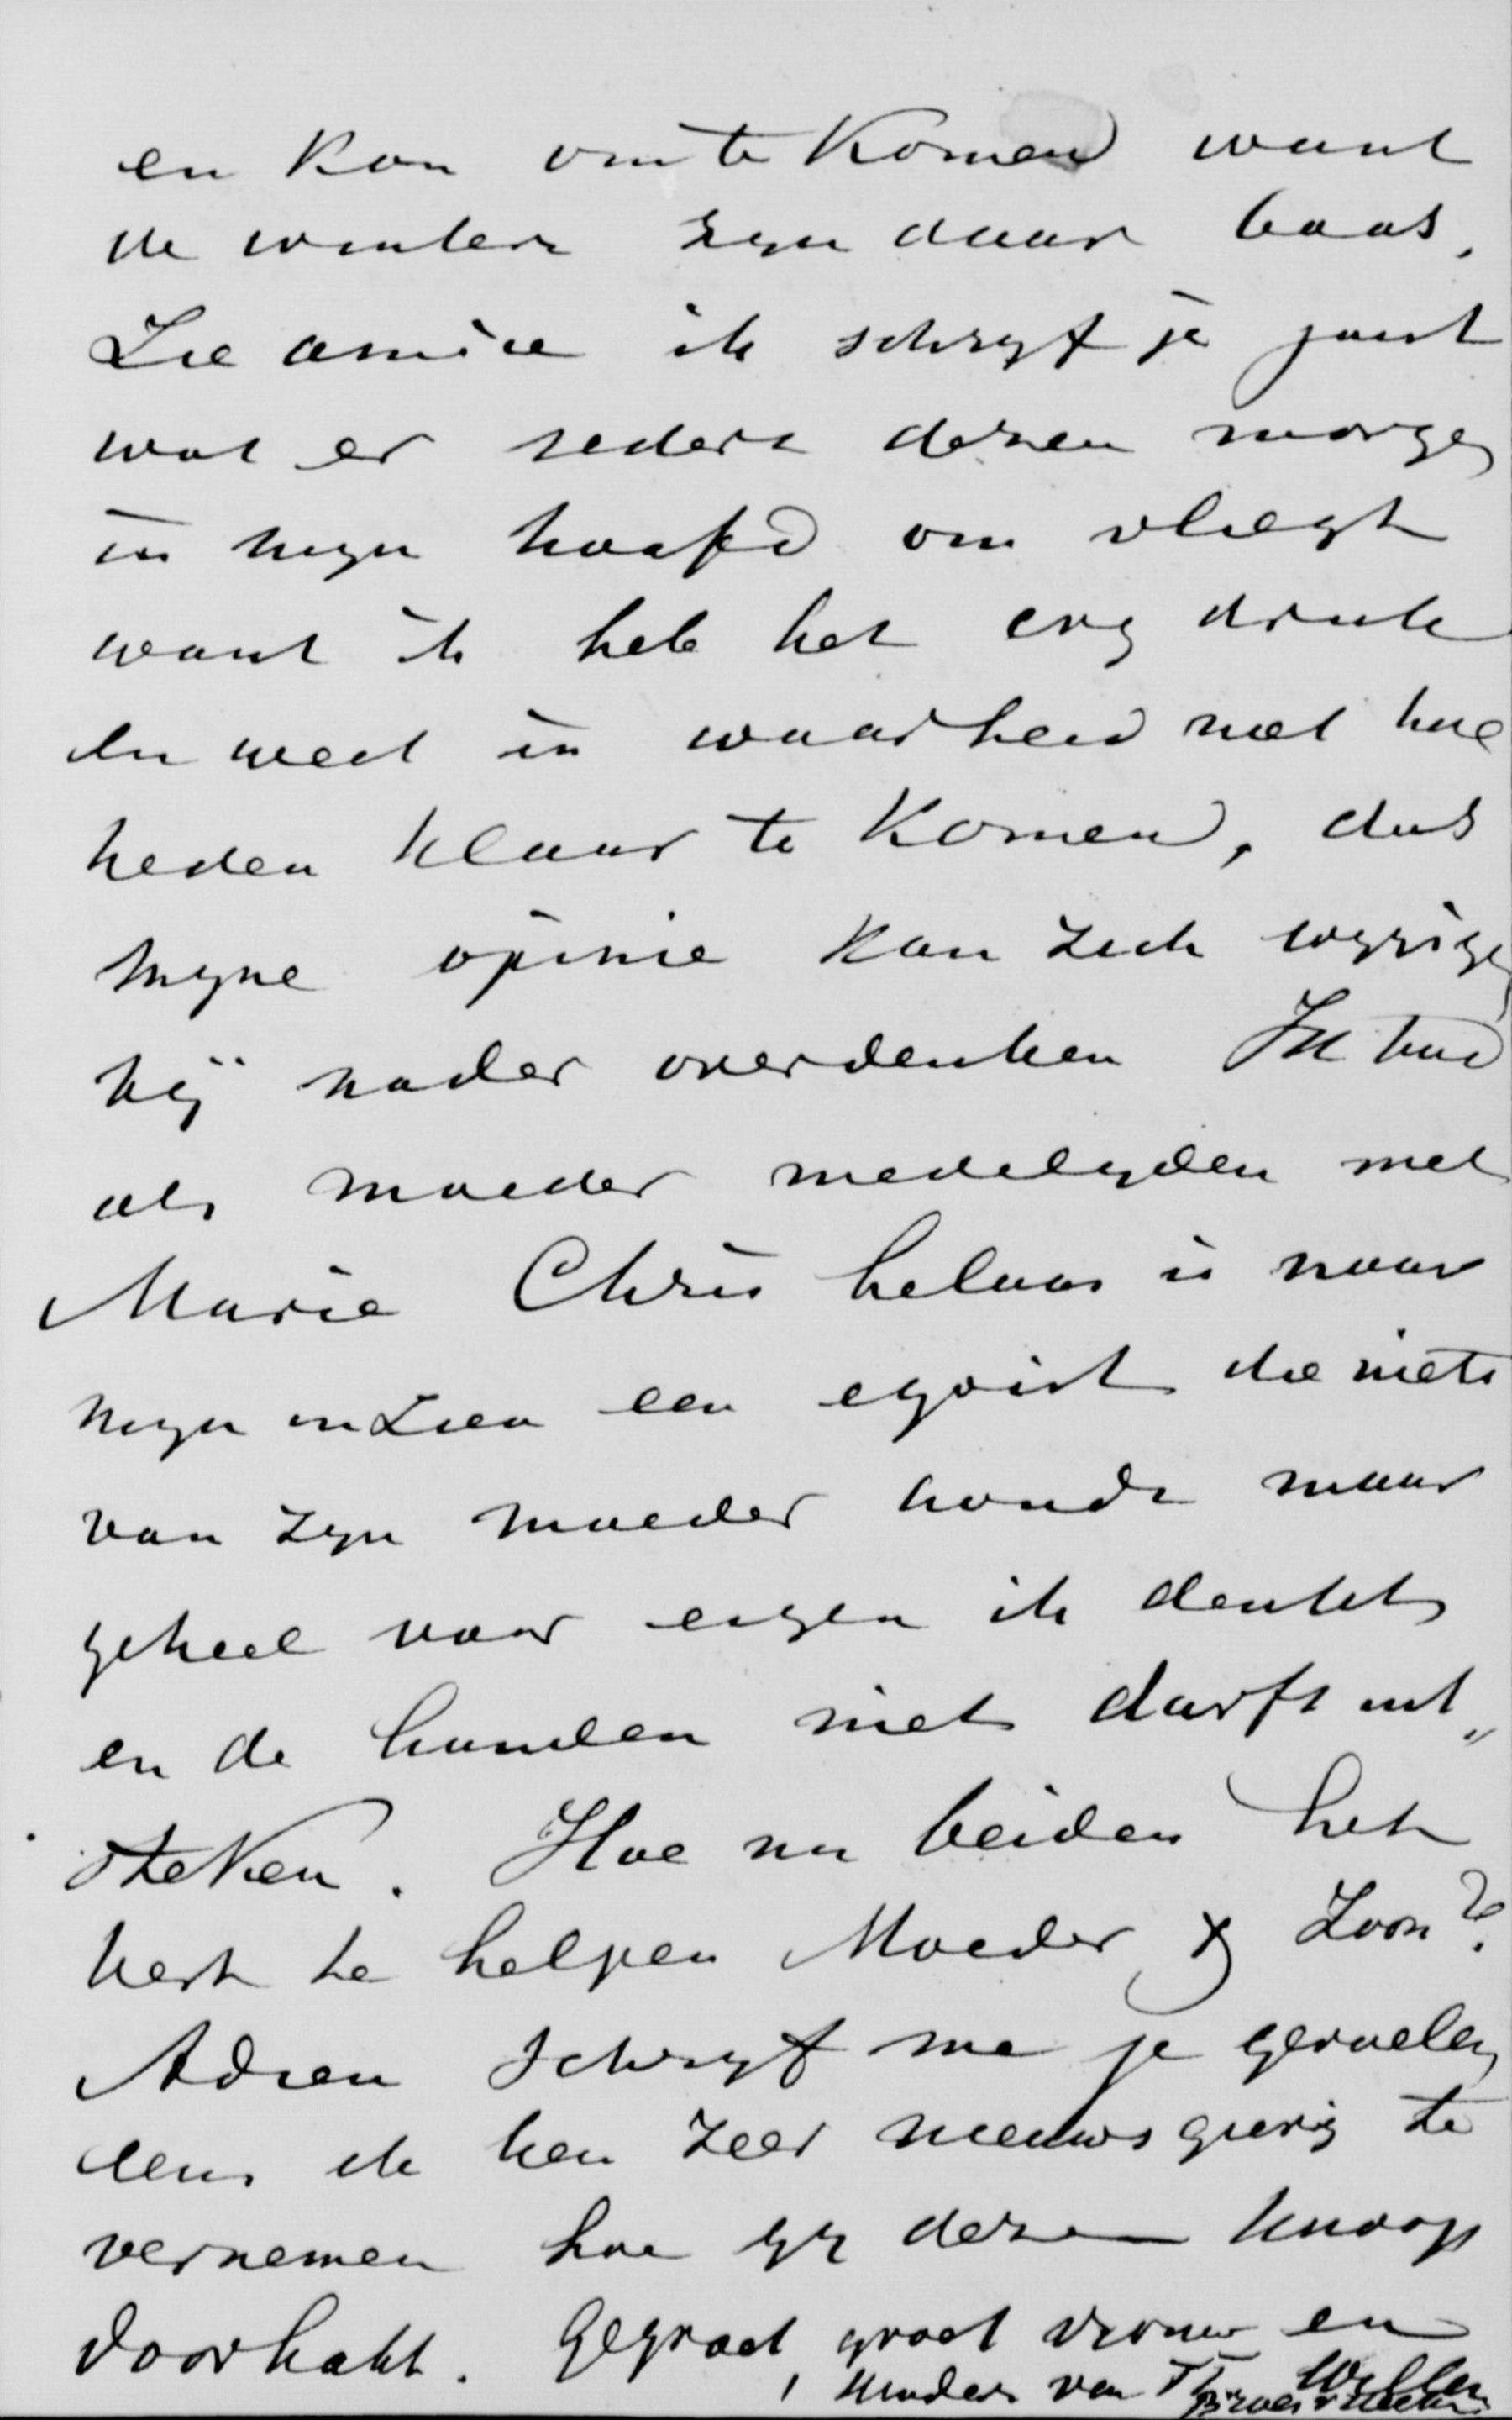 en kou om te komen want
de winters zyn daar baas,
Zie amice ik schryf je juist
wat er seders dezen morgen
in myn hoofd om vliegt
want ik heb het erg druk
en weet in waarheid niet hoe
heden klaar te komen, dus
myne opinie kan zich wyzigen
bij nader overdenken Ik heb
als moeder medelyden met
Marie Chris helaas is naar
myn inzien een egoist die niets
van zyn moeder houdt maar
geheel voor eigen ik denkt
en de handen niet durft uit„
steken. Hoe nu beiden het
best te helpen Moeder & Zoon?
Adrien schryf me je gevoelen
eens ik ben zeer nieuwsgierig te
vernemen hoe gy dezen knoop
doorhakt. Gegroet groet vrouw en
kinders van Willem